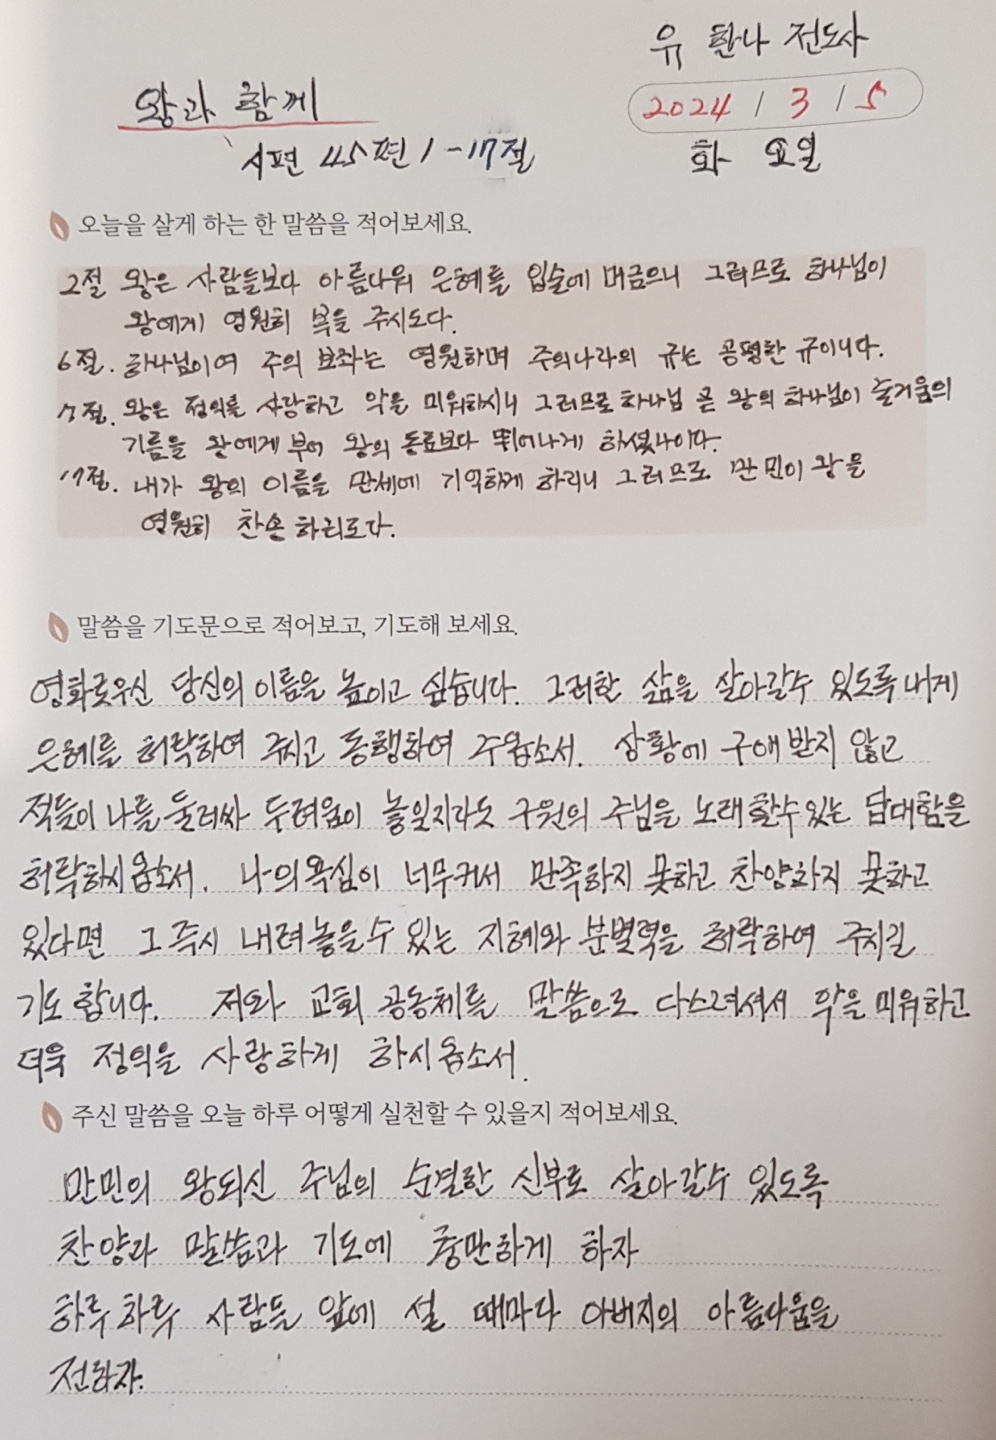 유 한나 전도사
왕과 함께
2024 / 3 / 5
시편 45편 1-17절
화 요일
오늘을 살게 하는 한 말씀을 적어보세요.
2절 왕은 사람들보다 아름다워 은혜를 입술에 머금으니 그러므로 하나님이
왕에게 영원히 복을 주시도다.
6절. 하나님이여 주의 보좌는 영원하며 주의나라의 규는 공평한 규이니다.
7절. 왕은 정의를 사랑하고 악을 미워하시니 그러므로 하나님 곧 왕의 하나님이 즐거움의
기름을 왕에게 부어 왕의 동료보다 뛰어나게 하셨나이다.
17절. 내가 왕의 이름을 만세에 기억하게 하리니 그러므로 만민이 왕을
영원히 찬송하리로다.
말씀을 기도문으로 적어보고, 기도해 보세요.
영화로우신 당신의 이름을 높이고 싶습니다. 그러한 삶을 살아갈수 있도록 내게
은혜를 허락하여 주시고 동행하여 주옵소서. 상황에 구애 받지 않고
적들이 나를 둘러싸 두려움이 놓일지라도 구원의 주님을 노래할수있는 담대함을
허락하시옵소서. 나의 욕심이 너무커서 만족하지 못하고 찬양하지 못하고
있다면 그 즉시 내려놓을수 있는 지혜와 분별력을 허락하여 주시길
기도 합니다. 저와 교회 공동체를 말씀으로 다스려셔서 악을 미워하고
더욱 정의을 사랑하게 하시옵소서.
주신 말씀을 오늘 하루 어떻게 실천할 수 있을지 적어보세요.
만민의 왕되신 주님의 순결한 신부로 살아갈수 있도록
찬양과 말씀과 기도에 충만하게 하자
하루하루 사람들 앞에 설 때마다 아버지의 아름다움을
전하자.